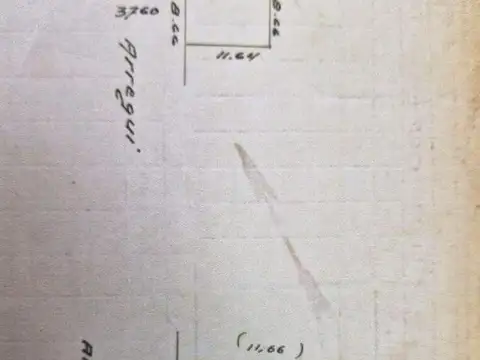 3760
8.66
8.66
11.64
Arregui
(11,66)